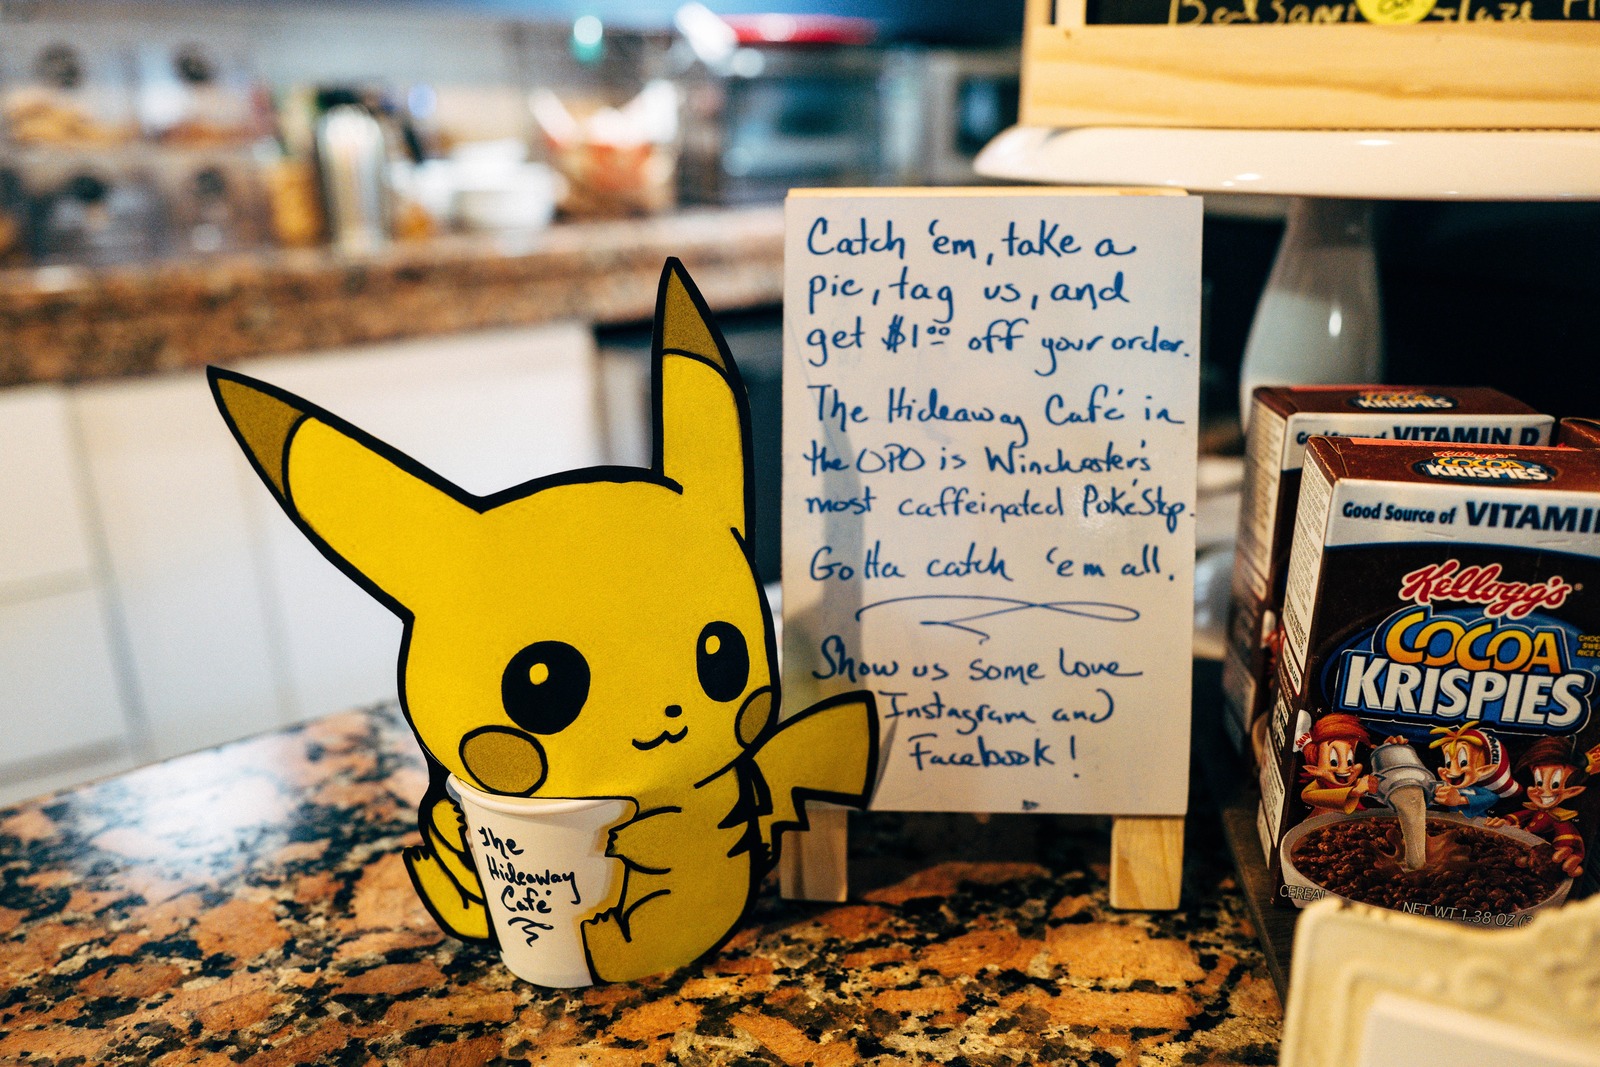 Catch 'em, take a
pic, tag us, and
get $1.00 off your order.
The Hideaway Café in
the OPO is Winchester's
most caffeinated PokéStop.
Gotta catch 'em all.
Show us some love
Instagram and
Facebook!
The
Hideaway
Café
KRISPIES
VITAMIN D
Kellogg's
COCOA
KRISPIES
Good Source of VITAMIN
Kellogg's
COCOA
KRISPIES
CEREAL
NET WT 1.38 OZ